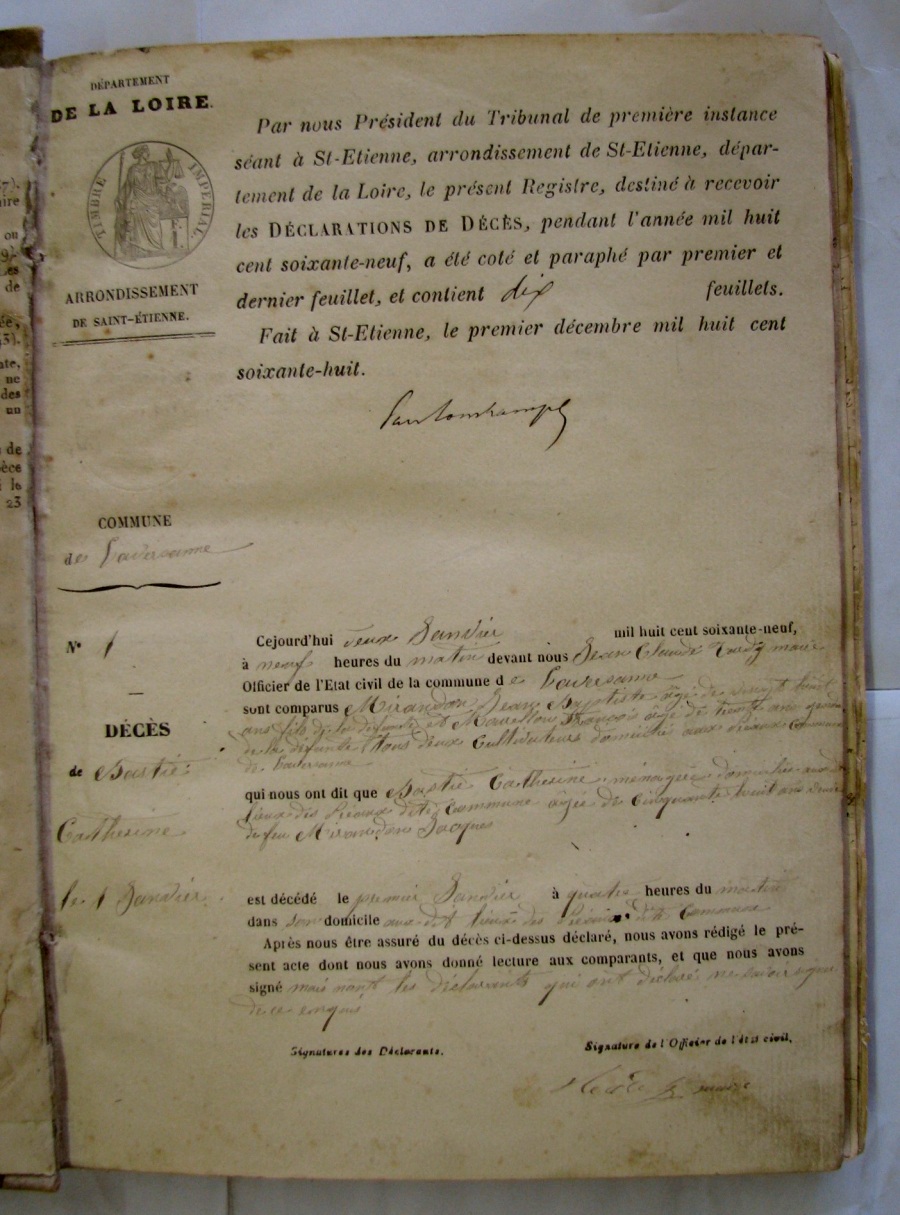 DÉPARTEMENT
DE LA LOIRE.
TIMBRE IMPÉRIAL
ARRONDISSEMENT
DE SAINT-ÉTIENNE.
Par nous Président du Tribunal de première instance
séant à St-Etienne, arrondissement de St-Etienne, dépar-
tement de la Loire, le présent Registre, destiné à recevoir
les DÉCLARATIONS DE DÉCÈS, pendant l'année mil huit
cent soixante-neuf, a été coté et paraphé par premier et
dernier feuillet, et contient dix feuillets.
Fait à St-Etienne, le premier décembre mil huit cent
soixante-huit.
COMMUNE
de Taversanne
N° 1
DÉCÈS
de Bastie
Catherine
le 1 Janvier
Cejourd'hui deux Janvier mil huit cent soixante-neuf,
à neuf heures du matin devant nous Jean Claude maire
Officier de l'Etat civil de la commune de Taversanne
sont comparus Mirandon Jean Baptiste âgé de vingt huit
ans fils de la défunte et François âgé de trente ans gendre
de la défunte tous deux Cultivateurs domicilié aux Commune
de Taversanne
qui nous ont dit que Bastie Catherine ménagère domiciliée aux
lieux des dite Commune âgée de Cinquante huit ans veuve
de feu Mirandon Jacques
est décédé le premier Janvier à quatre heures du matin
dans son domicile aux dit lieux des dite Commune
Après nous être assuré du décès ci-dessus déclaré, nous avons rédigé le pré-
sent acte dont nous avons donné lecture aux comparants, et que nous avons
signé mais nont les déclarants qui ont déclaré ne savoir signer
de ce enquis
Signatures des Déclarants.
Signature de l'Officier de l'état civil.
maire